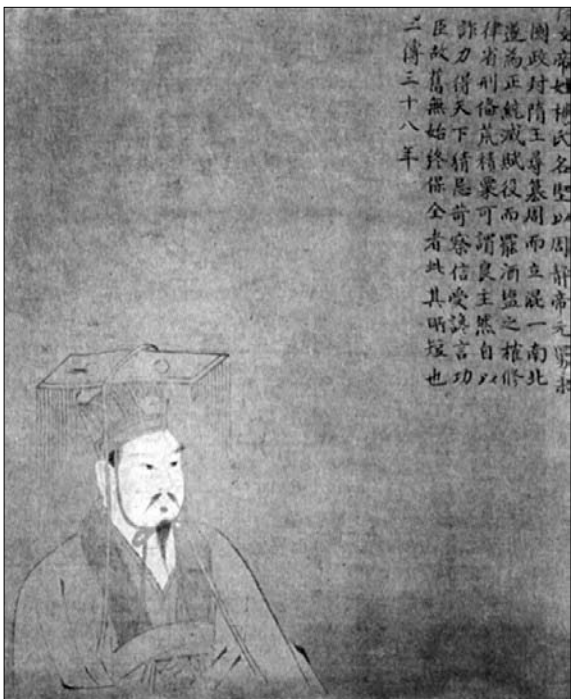 文帝姓楊氏名堅以周靜帝元舅
國政封隋王尋篡周而立混一南北
遂為正統減賦役而罷酒鹽之榷修
律省刑備荒積粟可謂良主然自以
詐力得天下猜忌苛察信受讒言功
臣故舊無始終保全者此其所短也
二傳三十八年